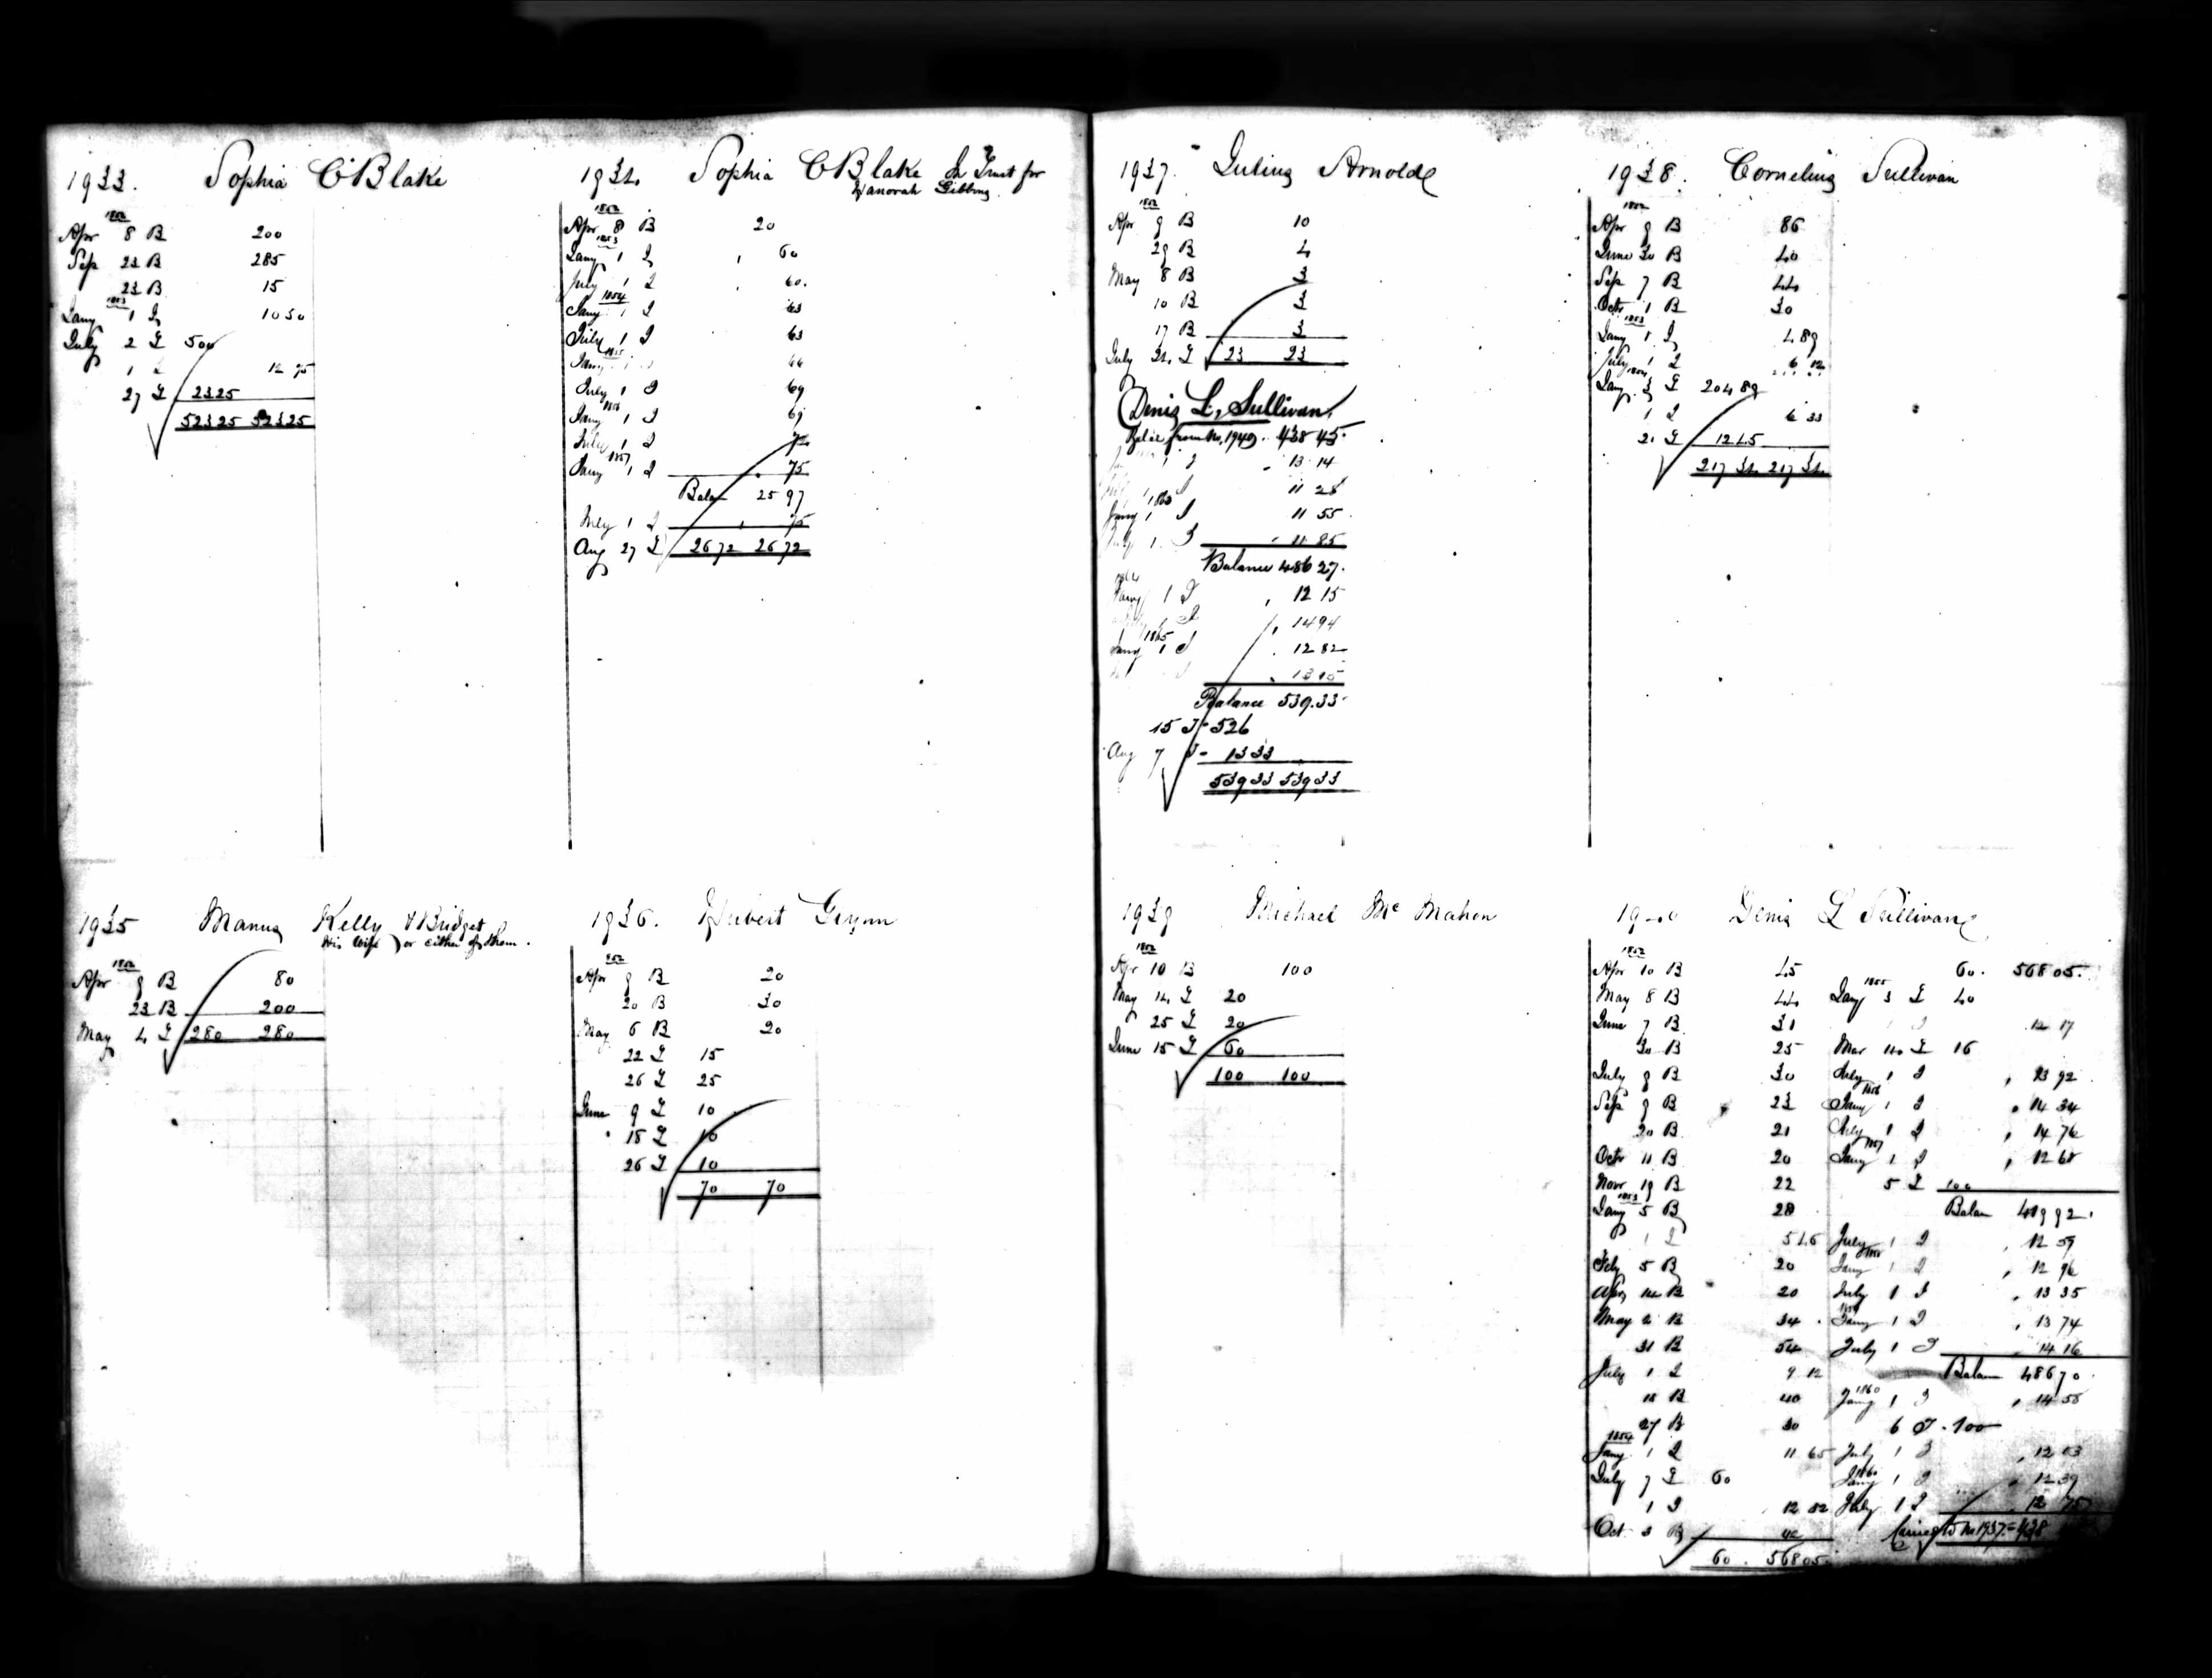 1933. Sophia C Blake
1852
Apr 8 B 200
Sep 23 B 285
23 B 15
1853
Jany 1 I 10 50
July 2 T 500
1 I 12 75
27 T 23 25
523 25 523 25
1934 Sophia C Blake In Trust for
Hanorah Gibbons
1852
Apr 8 B 20
1853
Jany 1 I 60
July 1 I 60
1854
Jany 1 I 63
July 1 I 63
1855
Jany 1 I 66
July 1 I 69
1856
Jany 1 I 69
July 1 I 72
1857
Jany 1 I 75
Balan 25 97
July 1 I 75
Aug 27 T 26 72 26 72
1935 Manus Kelly & Bridget
His Wife or either of them.
1852
Apr 9 B 80
23 B 200
May 4 T 280 280
1936. Hubert Glynn
1852
Apr 9 B 20
20 B 30
May 6 B 20
22 T 15
26 T 25
June 9 T 10
15 T 10
26 T 10
70 70
1937. Julius Arnold
1852
Apr 9 B 10
29 B 4
May 8 B 3
10 B 3
17 B 3
July 24 T 23 23
Denis L. Sullivan
Bal ce from No. 1940. 438 45.
1 I 13 14
I 11 28
1863
Jany 1 I 11 55
July 1 I 11 85
Balance 486 27.
1864
Jany 1 I 12 15
I 14 94
1865
Jany 1 I 12 82
13 15
Balance 539.33
15 T 526
Aug 7 T 13 33
539 33 539 33
1938. Cornelius Sullivan
1852
Apr 9 B 86
June 30 B 40
Sep 7 B 44
Octr 1 B 30
1853
Jany 1 I 4 89
July 1 I 6 12
1854
Jany 3 T 204 89
1 I 6 33
21 T 12 45
217 34 217 34
1939 Michael Mc Mahon
1852
Apr 10 B 100
May 14 T 20
25 T 20
June 15 T 60
100 100
1940 Denis L Sullivan
1852
Apr 10 B 45
May 8 B 44
June 7 B 31
30 B 25
July 9 B 30
Sep 9 B 23
20 B 21
Octr 11 B 20
Novr 19 B 22
1853
Jany 5 B 28
1 I 5 46
Feby 5 B 20
Apr 14 B 20
May 2 B 34
31 B 54
July 1 I 9 12
18 B 40
27 B 30
1854
Jany 1 I 11 65
July 7 T 60
1 I 12 82
Oct 3 B 42
60. 568 05.
60. 568 05.
1855
Jany 3 T 40
I 12 17
Mar 14 T 16
July 1 I 13 92
1856
Jany 1 I 14 34
July 1 I 14 76
1857
Jany 1 I 12 68
5 T 100
Balan 419 92.
July 1 I 12 59
1858
Jany 1 I 12 96
July 1 I 13 35
1859
Jany 1 I 13 74
July 1 I 14 16
Balan 486 70
1860
Jany 1 I 14 58
6 T. 100
July 1 I 12 03
Jany 1 I 12 39
July 1 I 12 75
Carried to No 1937 = 438